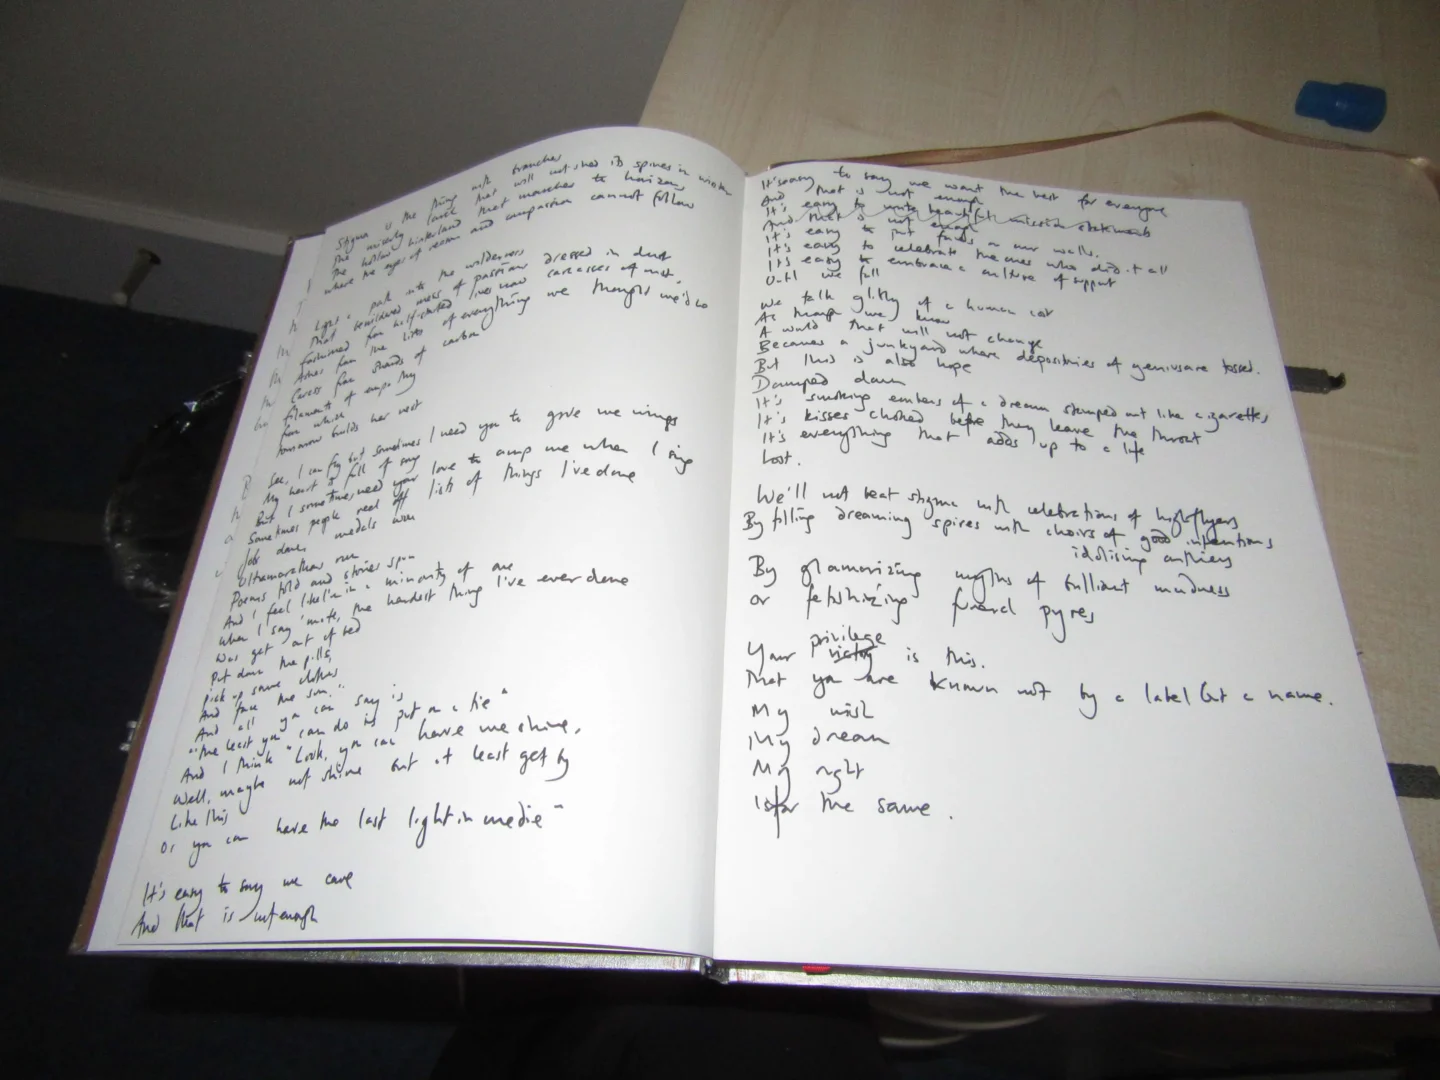 Stigma is the thing with branches
The unlovely larch that will not shed its spines in winter
The hollow hinterland that marches to horizons
Where the eyes of reason and compassion cannot follow
Light a path into the wilderness
That bewildered mess of passions dressed in dust
fashioned from half-started lives now carcasses of rust,
Ashes from the lists of everything we thought we'd do
Caress from shards of carbon
filament of empathy
from which
tomorrow builds her nest
See, I can fly but sometimes I need you to give me wings
My heart is full of song
But I sometimes need your love to amp me when I sing
Sometimes people reel off lists of things I've done
Jobs done, medals won
Ultramarathons run
Poems told and stories spun
And I feel like I'm in a minority of one
When I say "mate, the hardest thing I've ever done
Was get out of bed
Put down the pills,
pick up some clothes
And face the sun."
And all you can say is
"The least you can do is put on a tie"
And I think "Look, you can have me shine,
Well, maybe not shine but at least get by
Like this
Or you can have the last light in me die"
It's easy to say we care
And that is not enough
It's easy to say we want the best for everyone
And that is not enough
It's easy to write beautiful mission statements
And that is not enough
It's easy to put faces on our walls.
It's easy to celebrate the ones who did it all
It's easy to embrace a culture of support
Until we fall
We talk glibly of a human cost
As though we know
A world that will not change
Becomes a junkyard where depositries of genius are tossed.
But this is also hope
Damped down
It's smoking embers of a dream stamped out like cigarettes,
It's kisses choked before they leave the throat
It's everything that adds up to a life
Lost.
We'll not beat stigma with celebrations of highflyers
By filling dreaming spires with choirs of good intentions
idolising outliers
By glamorizing myths of brilliant madness
or fetishizing funeral pyres
privilege
Your victory is this.
That you are known not by a label but a name.
My wish
My dream
My right
Is for the same.